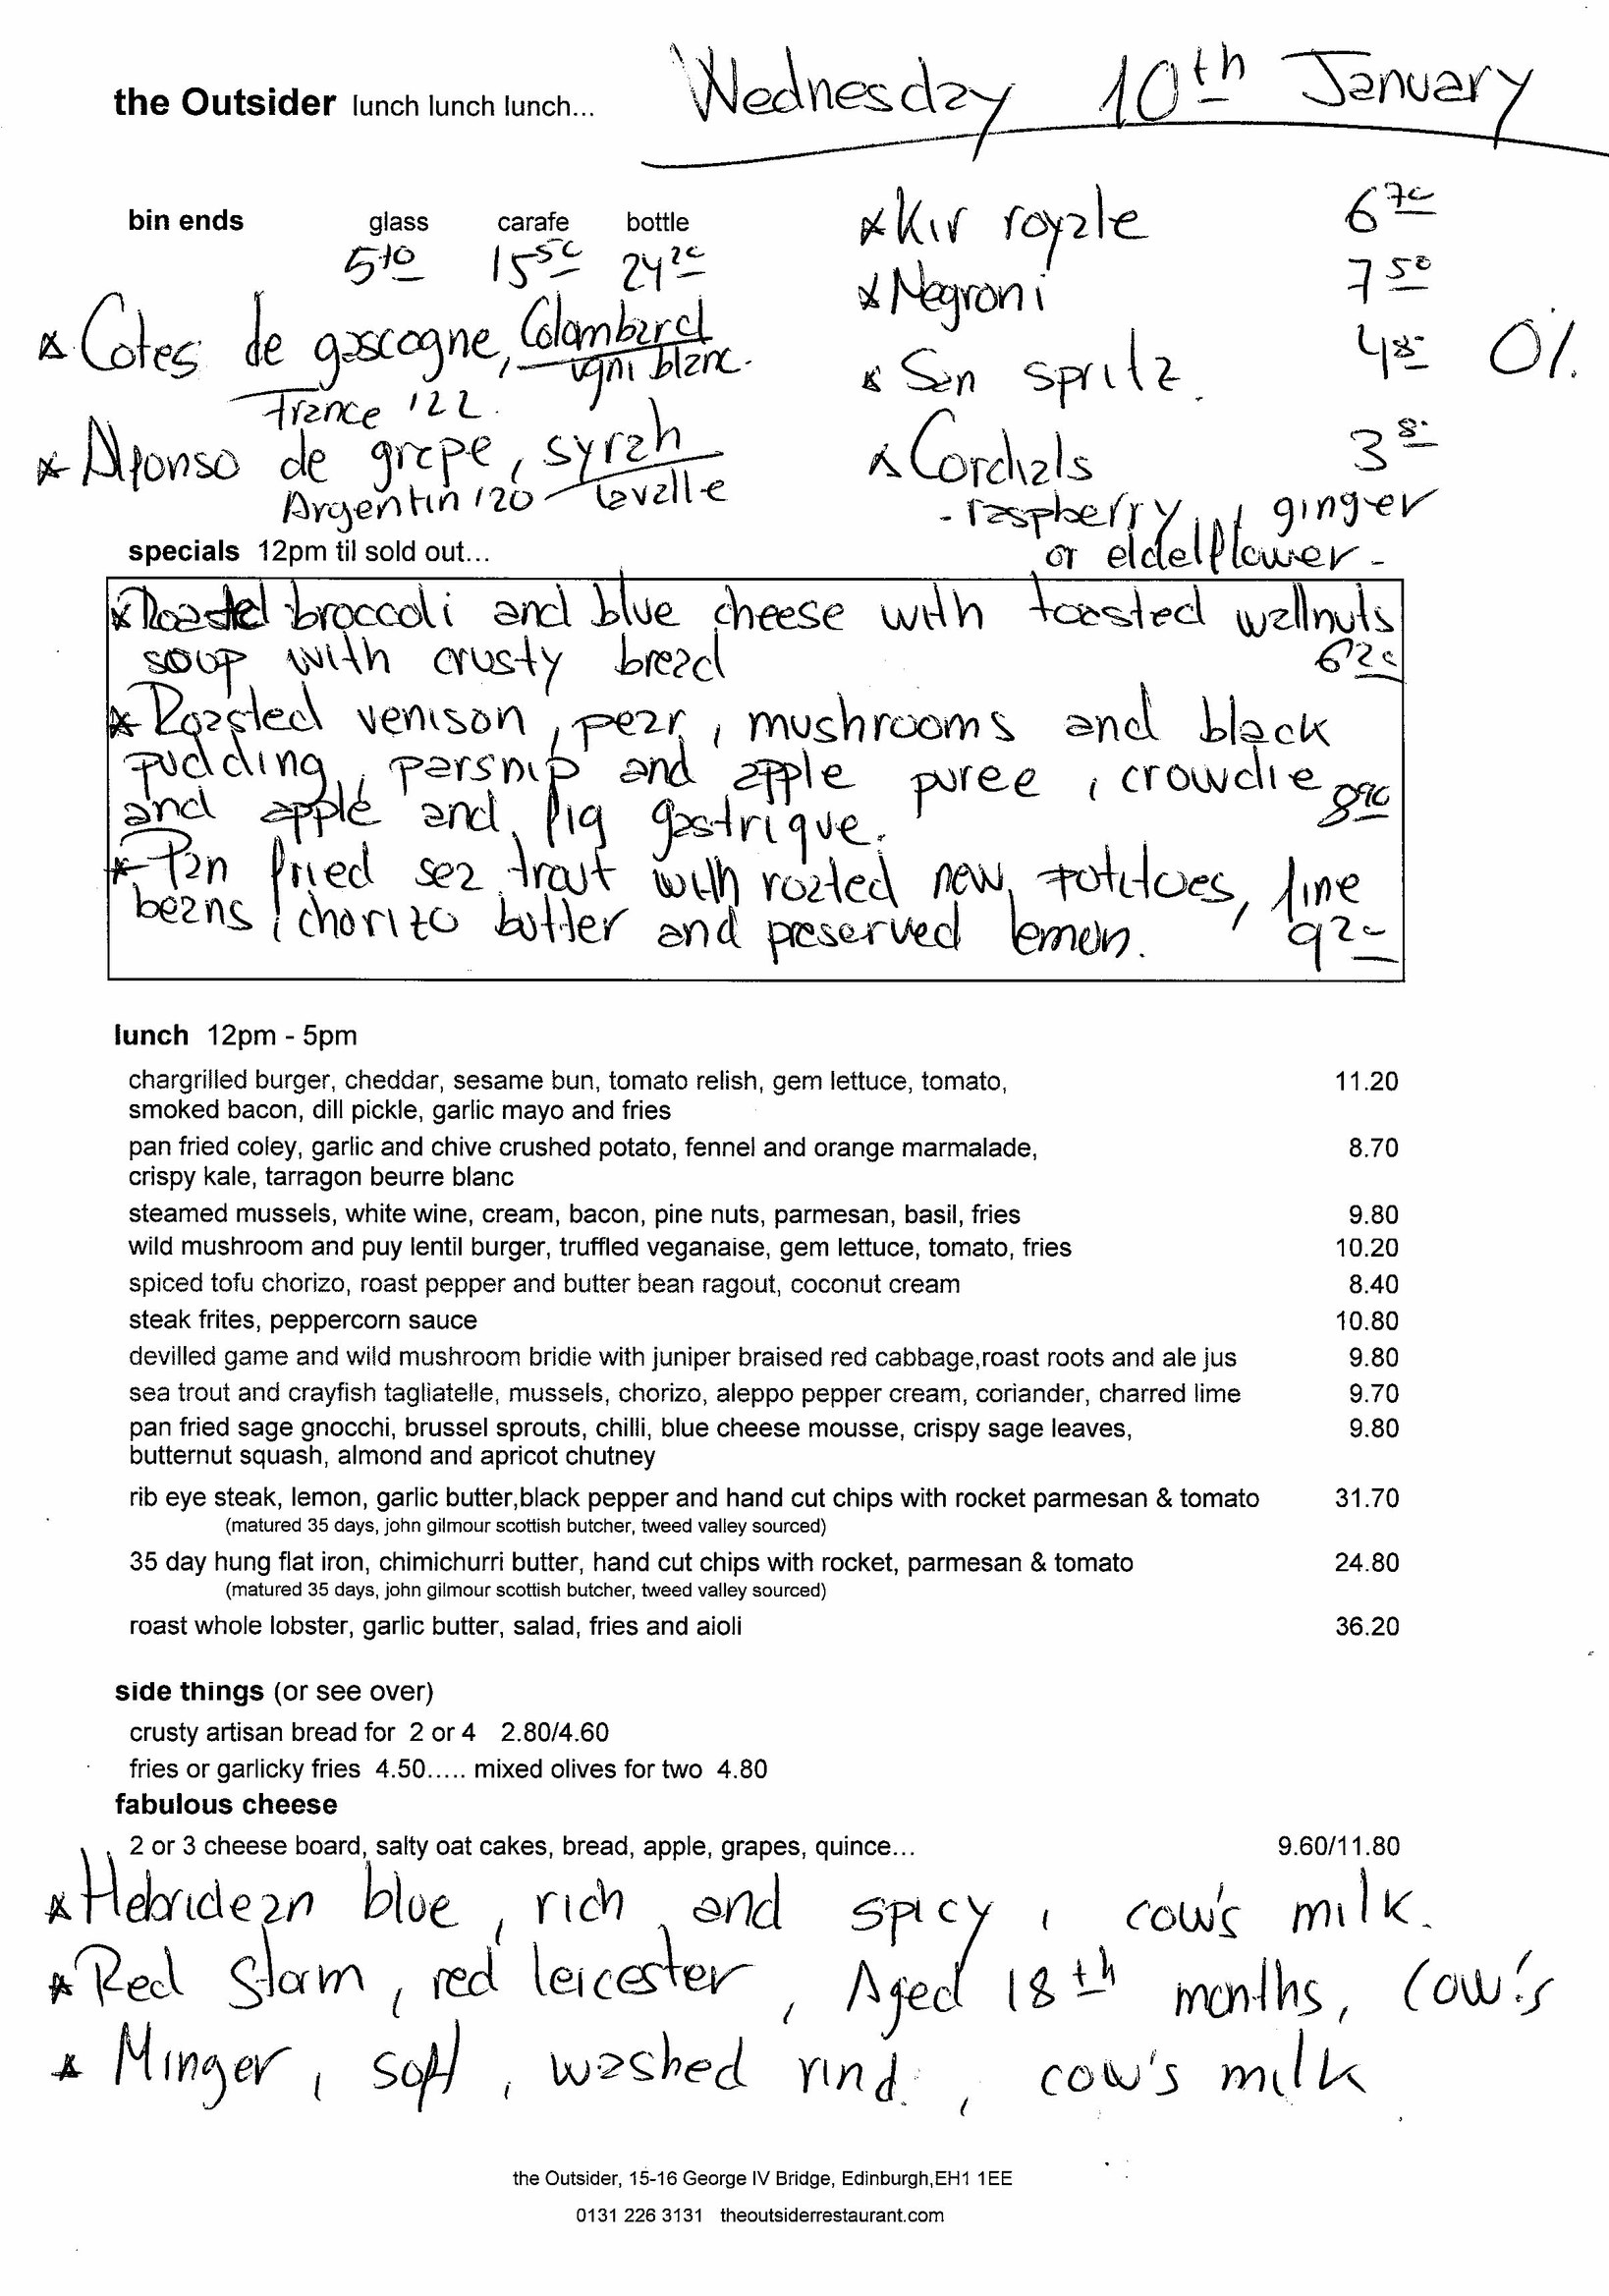 the Outsider lunch lunch lunch...
Wednesday 10th January
bin ends glass carafe bottle
5 10 15 50 24 20
* Cotes de gascogne, Colombard
ugni blanc.
France '22.
* Alfonso de grape, syrah
Argentin '20 Lavalle
* Kir royale 6 70
* Negroni 7 50
* San spritz. 4 8- 0%
* Cordials 3 8-
- raspberry, ginger
or eldelflower -
specials 12pm til sold out...
* Roasted broccoli and blue cheese with toasted wallnuts
soup with crusty bread 6 20
* Roasted venison, pear, mushrooms and black
pudding, parsnip and apple puree, crowdie
and apple and fig gastrique. 8 90
* Pan fried sea trout with roated new potitoes, fine
beans, chorizo butter and preserved lemon. 9 20
lunch 12pm - 5pm
chargrilled burger, cheddar, sesame bun, tomato relish, gem lettuce, tomato, 11.20
smoked bacon, dill pickle, garlic mayo and fries
pan fried coley, garlic and chive crushed potato, fennel and orange marmalade, 8.70
crispy kale, tarragon beurre blanc
steamed mussels, white wine, cream, bacon, pine nuts, parmesan, basil, fries 9.80
wild mushroom and puy lentil burger, truffled veganaise, gem lettuce, tomato, fries 10.20
spiced tofu chorizo, roast pepper and butter bean ragout, coconut cream 8.40
steak frites, peppercorn sauce 10.80
devilled game and wild mushroom bridie with juniper braised red cabbage,roast roots and ale jus 9.80
sea trout and crayfish tagliatelle, mussels, chorizo, aleppo pepper cream, coriander, charred lime 9.70
pan fried sage gnocchi, brussel sprouts, chilli, blue cheese mousse, crispy sage leaves, 9.80
butternut squash, almond and apricot chutney
rib eye steak, lemon, garlic butter,black pepper and hand cut chips with rocket parmesan & tomato 31.70
(matured 35 days, john gilmour scottish butcher, tweed valley sourced)
35 day hung flat iron, chimichurri butter, hand cut chips with rocket, parmesan & tomato 24.80
(matured 35 days, john gilmour scottish butcher, tweed valley sourced)
roast whole lobster, garlic butter, salad, fries and aioli 36.20
side things (or see over)
crusty artisan bread for 2 or 4 2.80/4.60
fries or garlicky fries 4.50..... mixed olives for two 4.80
fabulous cheese
2 or 3 cheese board, salty oat cakes, bread, apple, grapes, quince... 9.60/11.80
* Hebridean blue, rich and spicy, cow's milk.
* Red Storm, red leicester, Aged 18th months, Cow's
* Minger, soft, washed rind., cow's milk
the Outsider, 15-16 George IV Bridge, Edinburgh,EH1 1EE
0131 226 3131 theoutsiderrestaurant.com